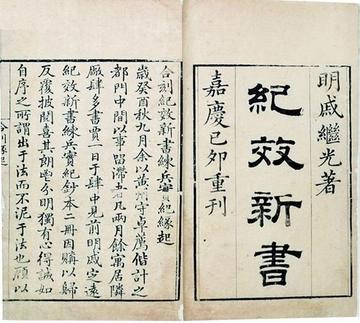 明戚繼光著
紀效新書
嘉慶己卯重刊
合刻紀效新書練兵實紀緣起
歲癸酉秋九月余以黃州守卓薦偕計之
都門中間以事畱滯者凡兩月餘寓居隣
厰肆多書賈一日于肆中見前明戚定遠
紀效新書練兵實紀鈔本二冊因購以歸
反覆披閱喜其朗鬯分明獨有心得誠如
自序之所謂出于法而不泥于法也顧以
合刻緣起